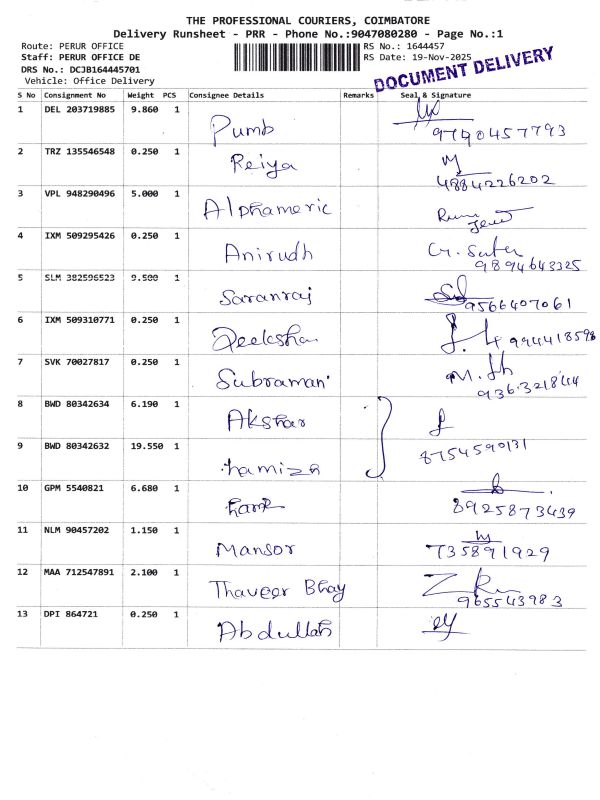 THE PROFESSIONAL COURIERS, COIMBATORE
Delivery Runsheet - PRR - Phone No.:9047080280 - Page No.:1
Route: PERUR OFFICE RS No.: 1644457
Staff: PERUR OFFICE DE RS Date: 19-Nov-2025
DRS No.: DCJB164445701
Vehicle: Office Delivery
DOCUMENT DELIVERY
S No Consignment No Weight PCS Consignee Details Remarks Seal & Signature
1 DEL 203719885 9.860 1 Pumb
2 TRZ 135546548 0.250 1 Reiya
4884226202
3 VPL 948290496 5.000 1 Alphameric
4 IXM 509295426 0.250 1 Anirudh
9894643325
5 SLM 382596523 9.500 1 Saranraj
9566407061
6 IXM 509310771 0.250 1 Deeksha
994418598
7 SVK 70027817 0.250 1 Subramani
8 BWD 80342634 6.190 1 Akshar
8754590131
9 BWD 80342632 19.550 1 hamizh
10 GPM 5540821 6.680 1
8925873439
11 NLM 90457202 1.150 1 Mansor
735891929
12 MAA 712547891 2.100 1 Thaveer Bhay
965543983
13 DPI 864721 0.250 1 Abdullah